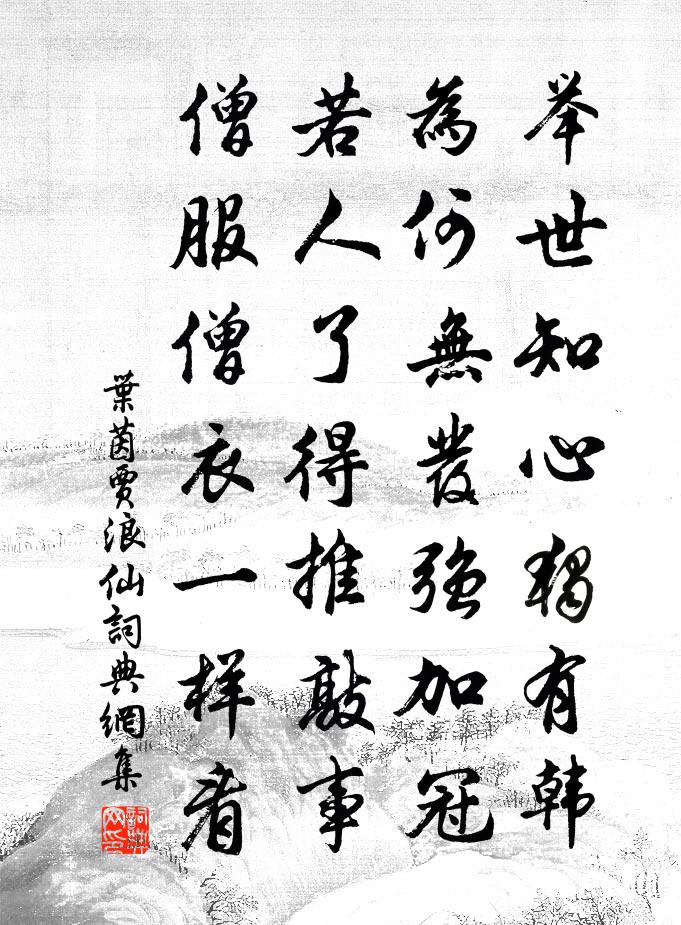 举世知心独有韩
為何無發強加冠
若人了得推敲事
僧服僧衣一样看
葉茵賈浪仙詞典網集
詞典網印